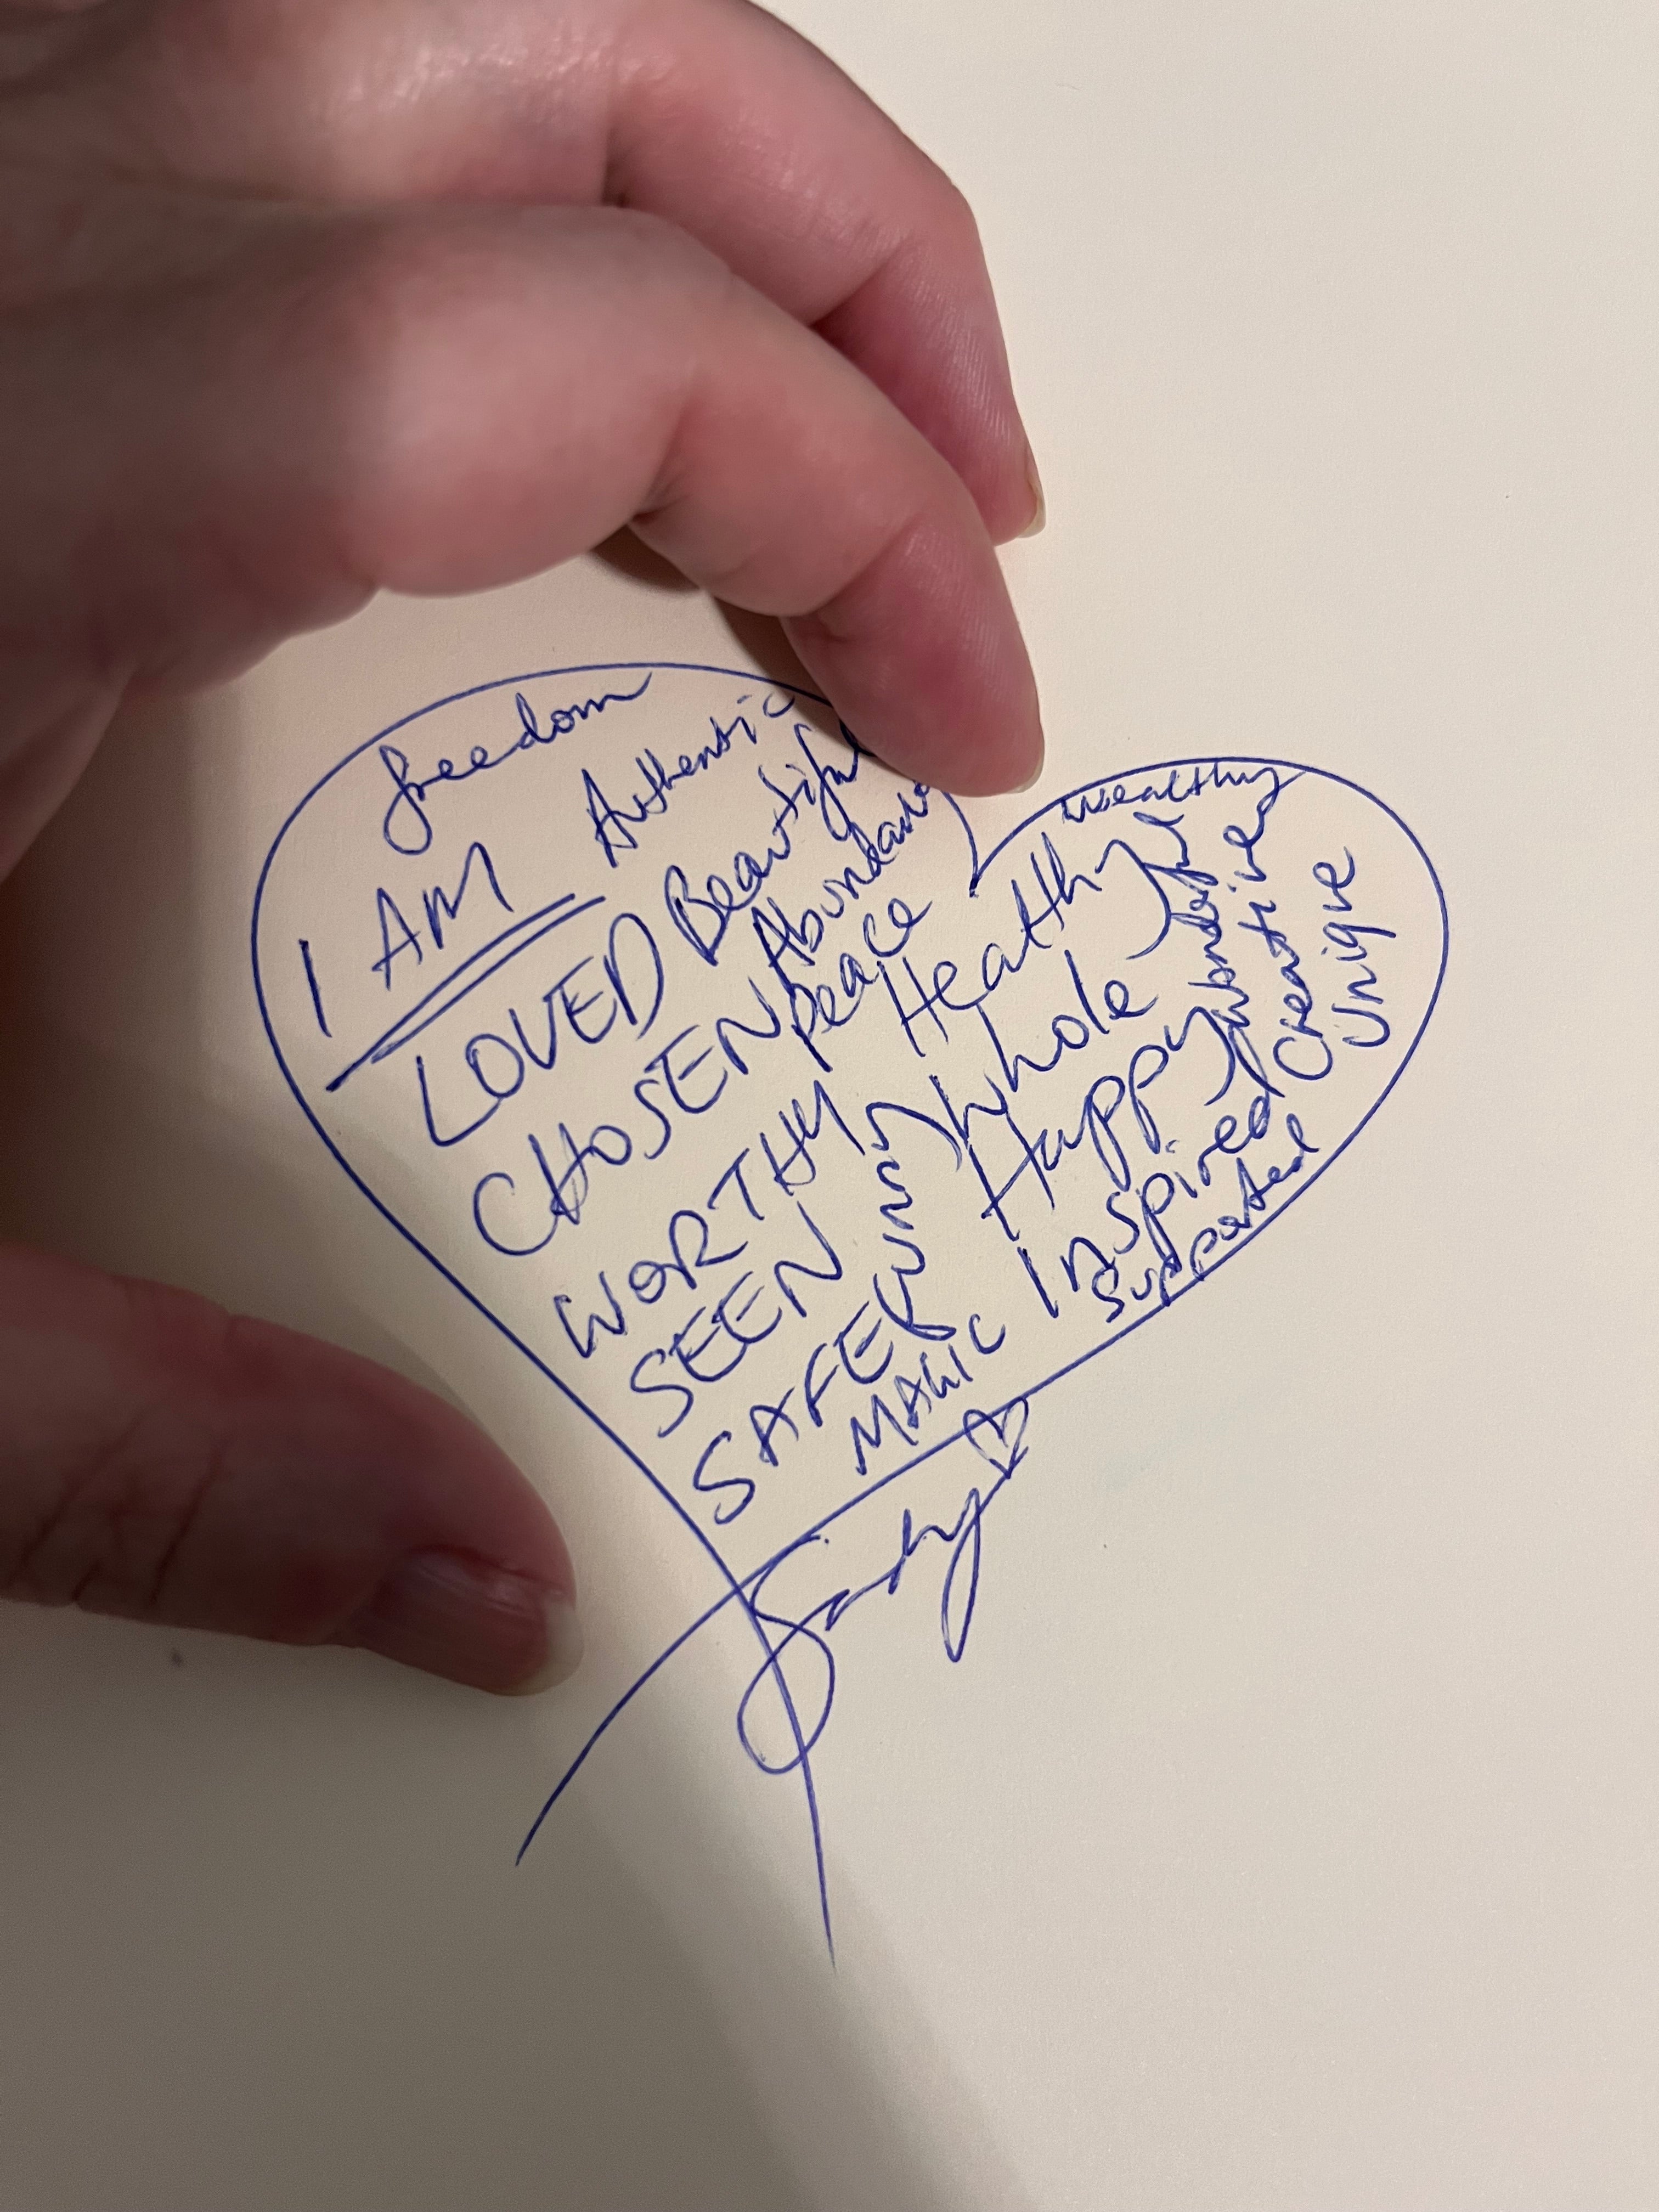 freedom
I AM
Authentic
LOVED Beautiful
CHOSEN Abundance
Peace
WORTHY
SEEN
SAFE
MAGIC
wealthy
Healthy
Whole
Happy
Inspired
Supported
Creative
Unique
Sandy